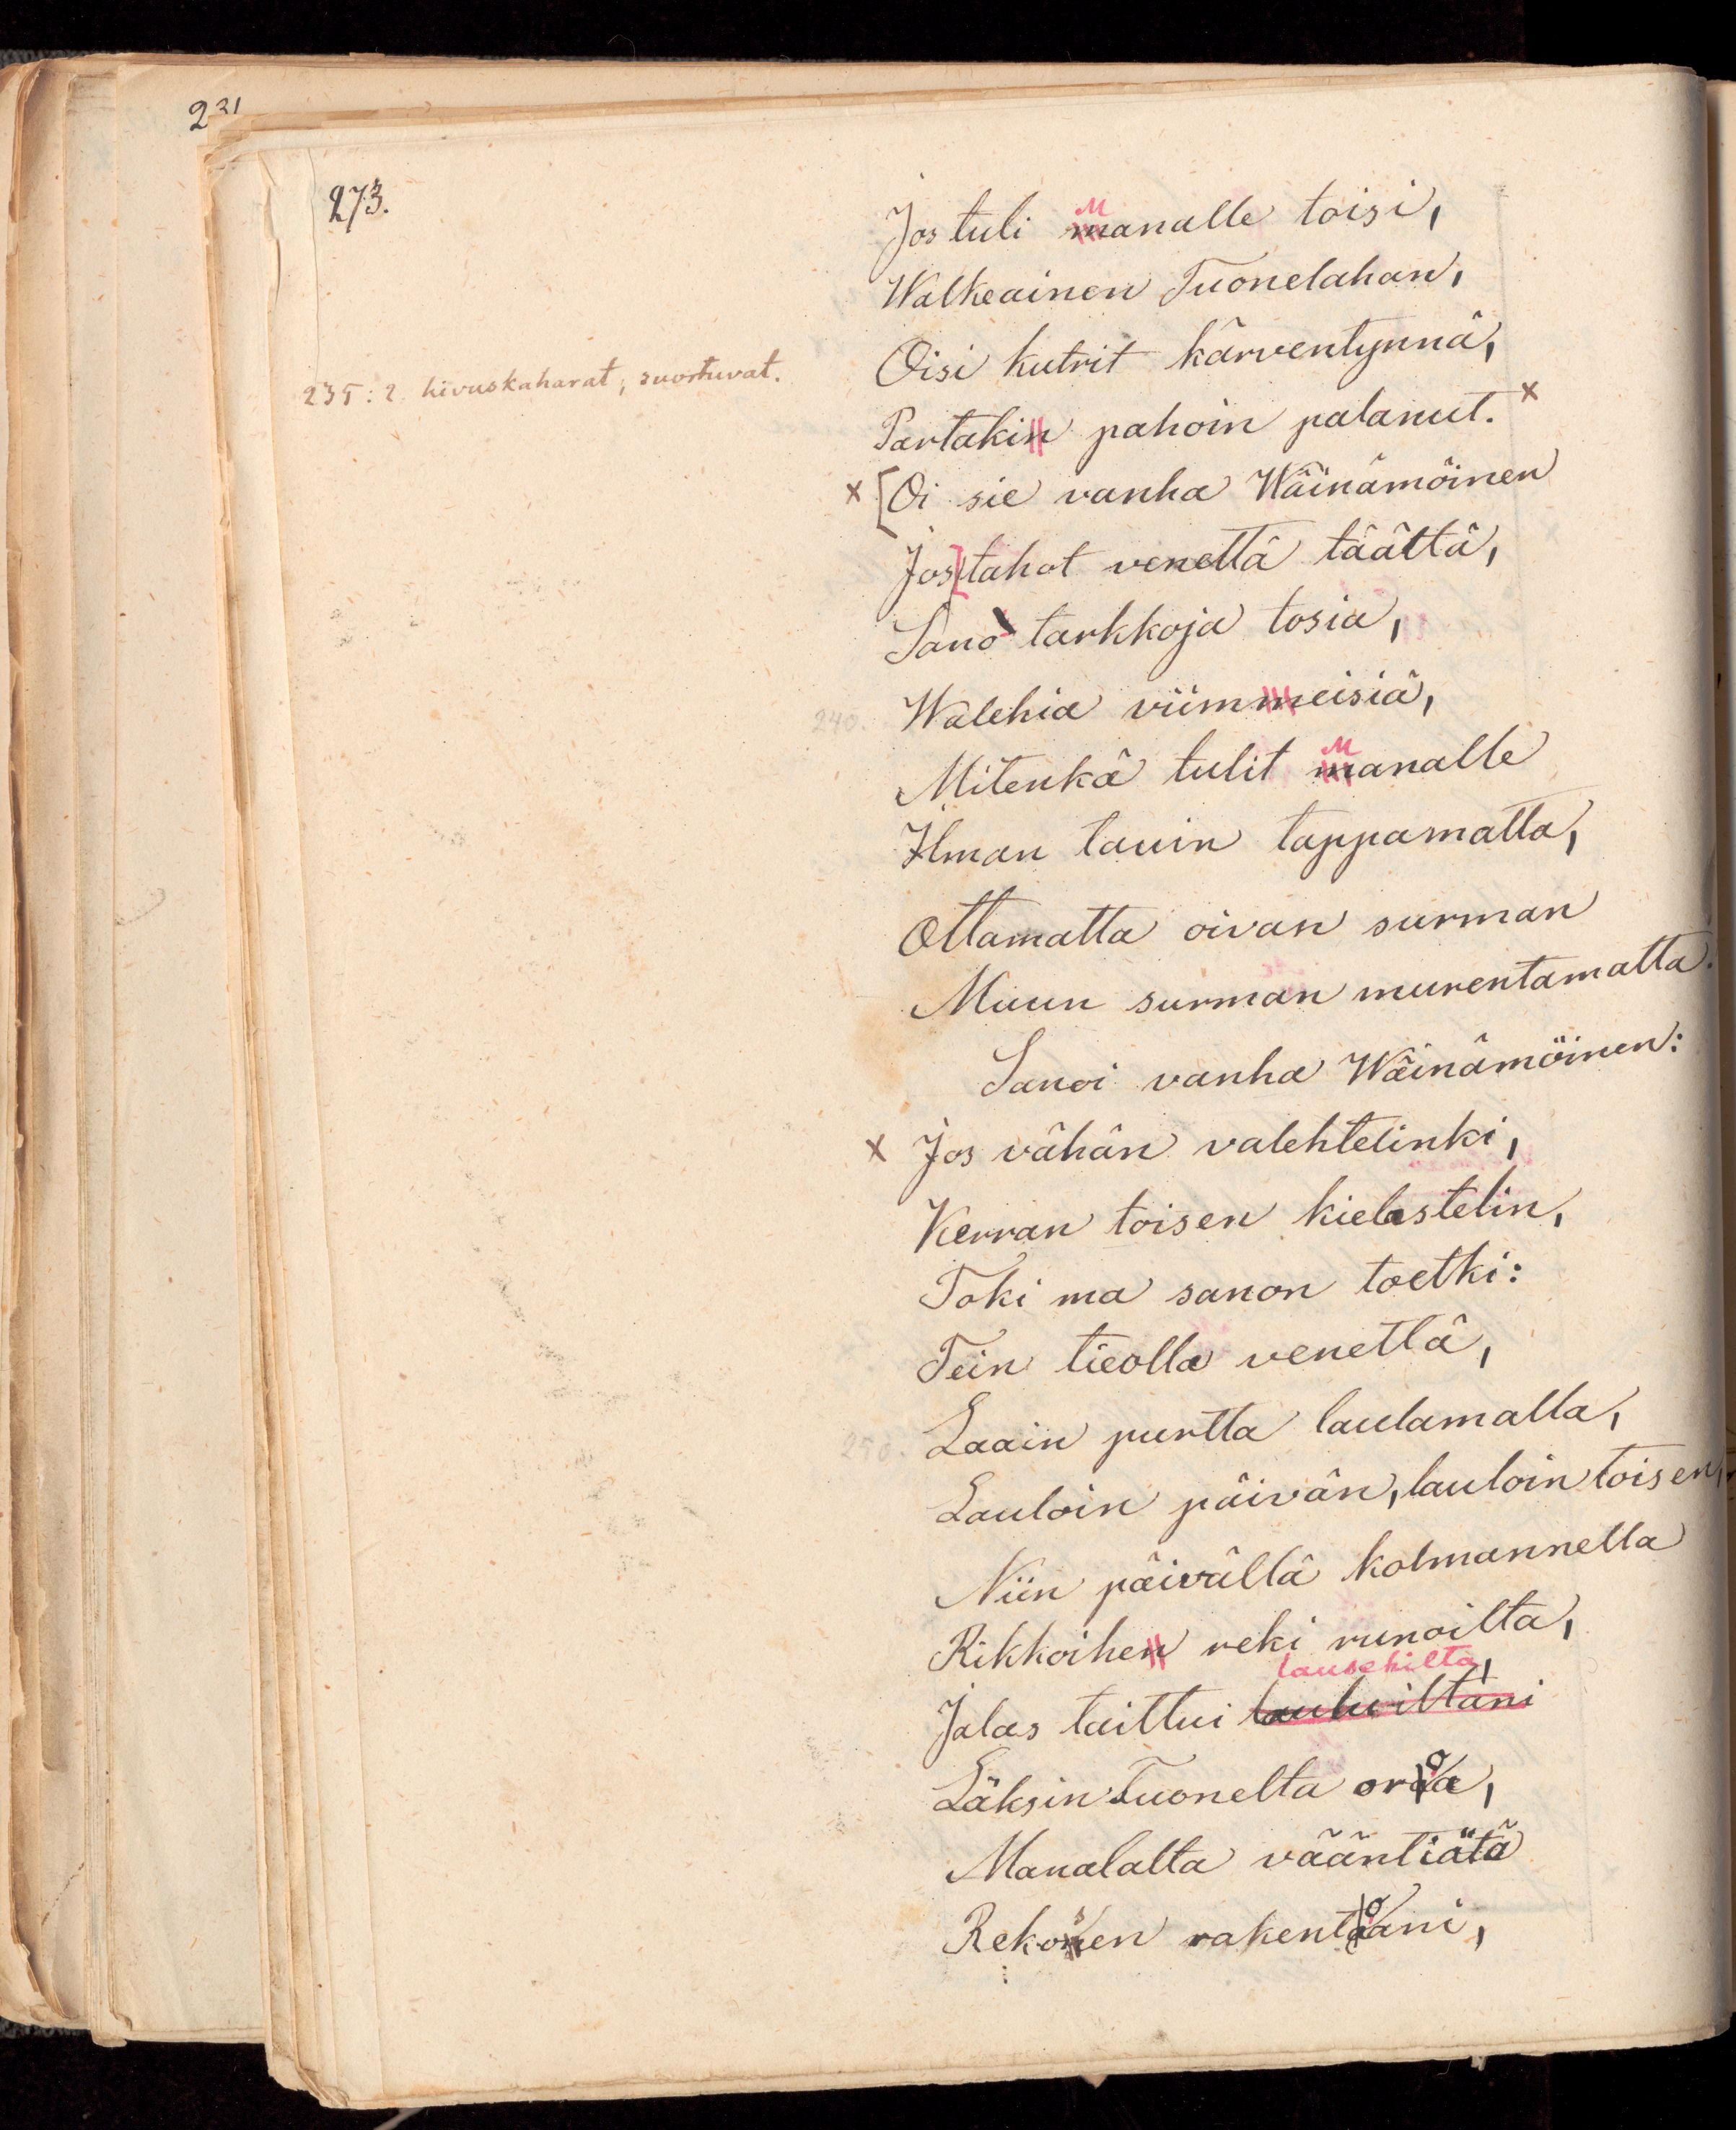 231
273.
Jos tuli Manalle toisi,
Walkeainen Tuonelahan,
Oisi kutrit kärventynnä,
235:2 hivuskaharat, suortuvat.
Partaki pahoin palanut. x
x [Oi sie vanha Wäinämöinen
Jos] tahot venettä täältä,
Sano tarkkoja tosia,
240. Walehia viimeisiä,
Mitenkä tulit Manalle
Ilman tauin tappamatta,
Ottamatta oivan surman
Muun surman murentamatta.
Sanoi vanha Wäinämöinen:
x Jos vähän valehtelinki,
Kerran toisen kielastelin,
Toki ma sanon toetki:
Tein tieolla venettä,
250. Laain purtta laulamalla,
Lauloin päivän, lauloin toisen,
Niin päivällä kolmannella
Rikkoihe reki runoilta,
lausehilta,
Jalas taittui lauluiltani
Läksin Tuonelta oroa,
Manalalta vääntiätä
Rekosen rakentoani,